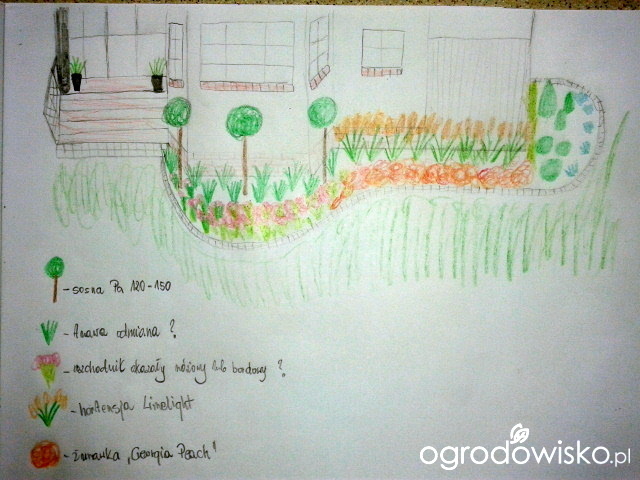 - sosna Pa 120-150
- trawa odmiana ?
- rozchodnik okazały różowy lub bordowy ?
- hortensja Limelight
- żurawka „Georgia Peach"
ogrodowisko.pl